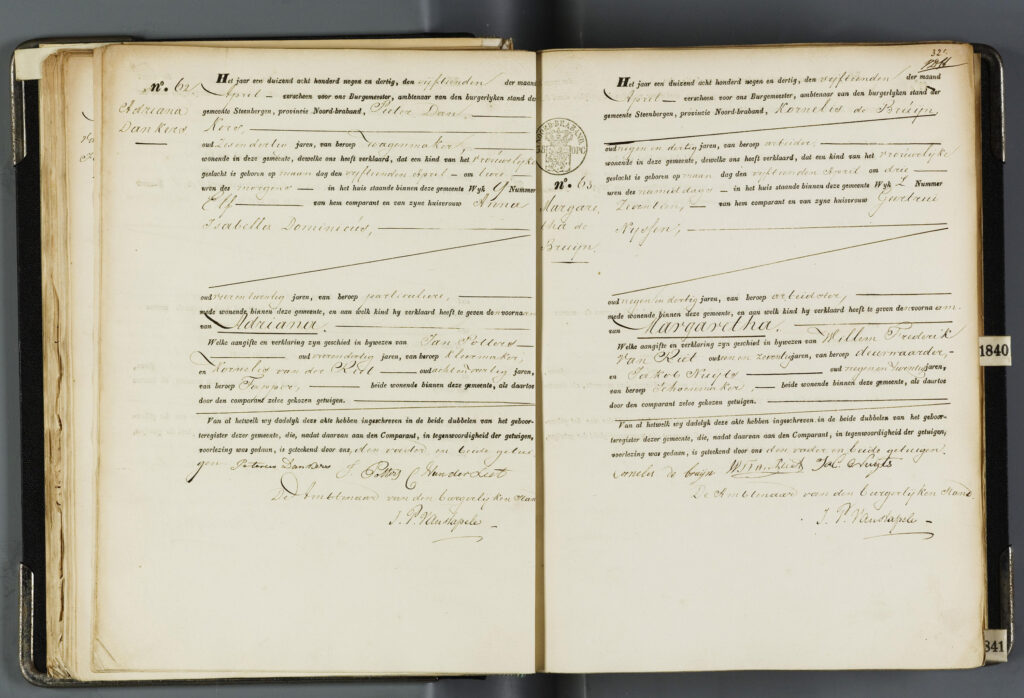 nº. 62.
Adriana
Dankers
Het jaar een duizend acht honderd negen en dertig, den vijftienden der maand
April — verscheen voor ons Burgemeester, ambtenaar van den burgerlyken stand der
gemeente Steenbergen, provincie Noord-braband, Pieter Dan,
Kers,
oud Zesendertig jaren, van beroep Wagenmaker,
wonende in deze gemeente, dewelke ons heeft verklaard, dat een kind van het vrouwelyke
geslacht is geboren op maan dag den vijftienden April — om twee
uren des morgens — in het huis staande binnen deze gemeente Wyk G Nummer
Elf — van hem comparant en van zyne huisvrouw Anna
Isabella Dominicus,
oud vierentwintig jaren, van beroep particuliere,
mede wonende binnen deze gemeente, en aan welk kind hy verklaard heeft te geven den voornaam
van Adriana.
Welke aangifte en verklaring zyn geschied in bywezen van Jan Potters
oud vierendertig jaren, van beroep kleermaker,
en Kornelis van der Riet — oud jaren,
van beroep Tapper, — beide wonende binnen deze gemeente, als daartoe
door den comparant zelve gekozen getuigen.
Van al hetwelk wy dadelyk deze akte hebben ingeschreven in de beide dubbelen van het geboor-
teregister dezer gemeente, die, nadat daarvan aan den Comparant, in tegenwoordigheid der getuigen,
voorlezing was gedaan, is geteekend door ons, den vader en beide getui-
gen Peterus Dankers J Potters C Van der Riet
De Ambtenaar van den burgerlyken Stand
J. P. Van Kapele
32
NOORD-BRABAND
nº. 63.
Margare
tha de
Bruijn.
Het jaar een duizend acht honderd negen en dertig, den vijftienden der maand
April — verscheen voor ons Burgemeester, ambtenaar van den burgerlyken stand der
gemeente Steenbergen, provincie Noord-braband, Kornelis de Bruijn,
oud negen en dertig jaren, van beroep arbeider,
wonende in deze gemeente, dewelke ons heeft verklaard, dat een kind van het vrouwelyke
geslacht is geboren op maan dag den vijftienden April — om drie
uren des namiddags — in het huis staande binnen deze gemeente Wyk Nummer
Zeventien, — van hem comparant en van zyne huisvrouw Geertrui
Nijssen,
oud negen en dertig jaren, van beroep arbeidster,
mede wonende binnen deze gemeente, en aan welk kind hy verklaard heeft te geven den voornaam
van Margaretha.
Welke aangifte en verklaring zyn geschied in bywezen van Willem Frederik
Van Riet oud een en zeventig jaren, van beroep deurwaarder,
en Jakob Nuyts — oud negen en twintig jaren,
van beroep Schoenmaker, — beide wonende binnen deze gemeente, als daartoe
door den comparant zelve gekozen getuigen.
Van al hetwelk wy dadelyk deze akte hebben ingeschreven in de beide dubbelen van het geboor-
teregister dezer gemeente, die, nadat daarvan aan den Comparant, in tegenwoordigheid der getuigen,
voorlezing was gedaan, is geteekend door ons den vader en beide getuigen.
Cornelis de bruijn Jac. Nuyts
De Ambtenaar van den burgerlyken Stand
J. P. Van Kapele
1840
841